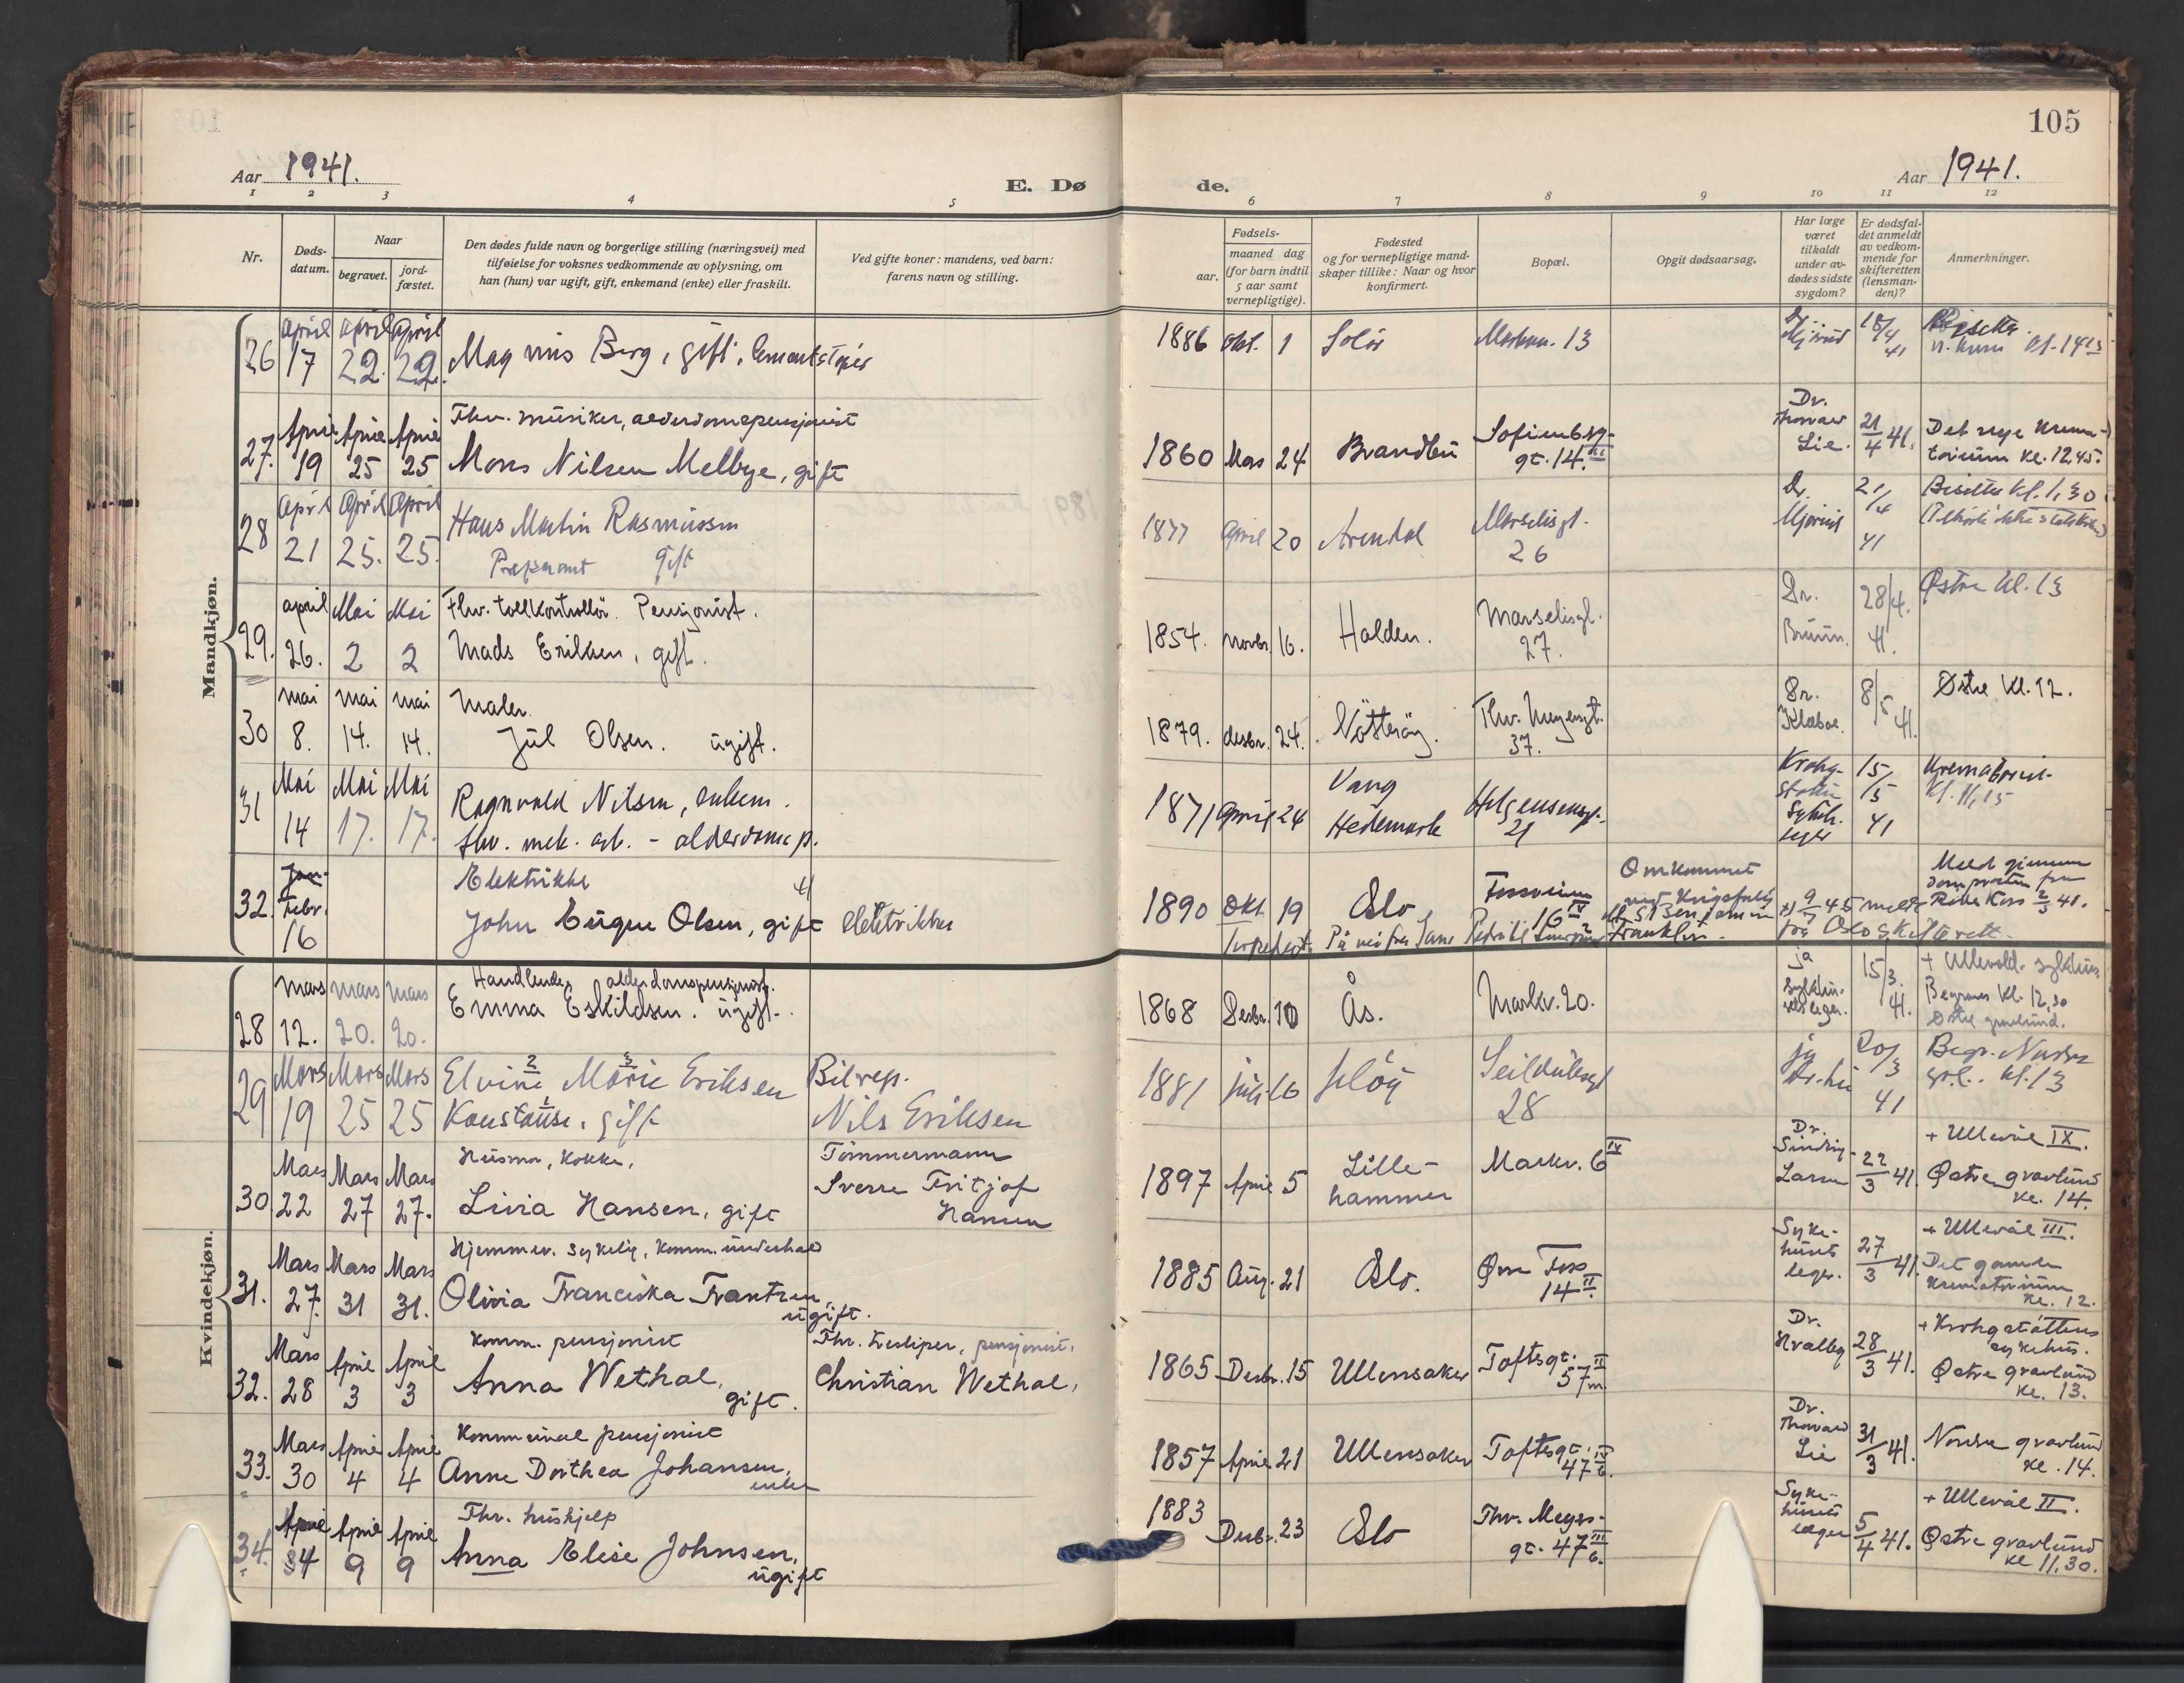 105
Aar 1941.
E. Dø
de.
Aar 1941.
1 2 3 4 5 6 7 8 9 10 11 12
Nr.
Døds-
datum.
Naar
begravet.
jord-
fæstet.
Den dødes fulde navn og borgerlige stilling (næringsvei) med
tilføielse for voksnes vedkommende av oplysning, om
han (hun) var ugift, gift, enkemand (enke) eller fraskilt.
Ved gifte koner: mandens, ved barn:
farens navn og stilling.
Fødsels-
aar.
maaned dag
(for barn indtil
5 aar samt
vernepligtige).
Fødested
og for vernepligtige mand-
skaper tillike: Naar og hvor
konfirmert.
Bopæl.
Opgit dødsaarsag.
Har læge
været
tilkaldt
under av-
dødes sidste
sygdom?
Er dødsfal-
det anmeldt
av vedkom-
mende for
skifteretten
(lensman-
den)?
Anmerkninger.
Mandkjøn.
26 April 17 April 22. April 22. Magnus Berg, gift, Cementstøper
1886 Okt. 1 Solør Markv. 13 Dr. 18/4 41 Bisettes n. krem kl. 14 15
27. April 19 April 25 April 25 Fhv. musiker, alderdomspensjonist
Mons Nilsen Melbye, gift
1860 Mars 24 Brandbu Sofienberg-
gt. 14. III Dr. Thorvald Lie. 21/4 41. Det nye krema-
torium kl. 12,45.
28 April 21 April 25. April 25. Hans Martin Rasmussen
Preparant gift
1877 April 20 Arendal Marselisgt.
26 Dr. 21/4 41 Bisettes kl. 1,30
29. april 26. Mai 2 Mai 2 Fhv. tollkontrollør. Pensjonist.
Mads Eriksen, gift.
1854. novbr. 16. Halden. Marselisgt.
27. Dr. Bruun. 28/4. 41. Østre kl. 13
30 mai 8. mai 14. mai 14. Maler.
Jul Olsen. ugift.
1879. desbr. 24. Nøtterøy. Thv. Meyersgt.
37. Dr. Klaboe. 8/5 41. Østre kl. 12.
31 Mai 14 Mai 17. Mai 17. Ragnvald Nilsen, enkem.
fhv. mek. arb. - alderdoms p.
1871 April 24 Vang
Hedemark Helgesensgt.
21 Krohg-
støtten
sykeh.
lege 15/5 41 Krematoriet
kl. 11,15
32. Jan. Febr. 16 Elektriker
John Eugen Olsen, gift elektriker
1890 Okt. 19 Oslo Fossveien
16 IV Omkommet
ved krigsforlis
Benjamin
Franklin. 9/7 45 meldt
fra Oslo Skifterett. Meld gjennem
domprosten fra
Røde Kors 2/5 41.
torpedert. På vei fra
Kvindekjøn.
28 mars 12. mars 20. mars 20. Handlende, alderdomspensjonist.
Emma Eskildsen. ugift.
1868 Desbr. 10 Ås. Markv. 20. ja
sykehu-
sets leger. 15/3. 41. + Ullevål sykehus
Begraves kl. 12,30
Østre gravlund.
29 Mars 19 Mars 25 Mars 25 Elvine 2 Marie 3 Eriksen
Konstanse 1, gift Bilrep.
Nils Eriksen
1881 juli 16 Seilduksgt
28 ja 20/3 41 Begr. Nordre
gr.l. kl. 13
30 Mars 22 Mars 27 Mars 27. Husmor, kokke.
Livia Hansen, gift Tømmermann
Sverre Fritjof
Hansen
1897 April 5 Lille-
hammer Markv. 6 IV Dr.
Sinding-
Larsen 22/3 41. + Ullevål IX.
Østre gravlund
kl. 14.
31. Mars 27. Mars 31 Mars 31. Hjemmev. sykelig, komm. underhold
Olivia Franciska Frantzen,
ugift.
1885 Aug. 21 Oslo. Øvre Foss
14 II. Syke-
husets
leger. 27/3 41. + Ullevål III.
Det gamle
krematorium
kl. 12.
32. Mars 28 April 3 April 3 Komm. pensjonist
Anna Wethal,
gift. Fhv. tresliper, pensjonist.
Christian Wethal.
1865 Desbr. 15 Ullensaker Toftesgt.
57 II m. Dr.
Kvalby 28/3 41. + Krohgstøttens
sykehus.
Østre gravlund
kl. 13.
33. Mars 30 April 4 April 4 Kommunal pensjonist
Anne Dorthea Johansen,
enke
1857 April 21 Ullensaker Toftesgt.
47 IV 6. Dr.
Thorvald
Lie 31/3 41. Nordre gravlund
kl. 14.
34. April 4 April 9 April 9 Fhv. hushjelp
Anna Elise Johnsen,
ugift
1883 Desbr. 23 Oslo Thv. Meyers-
gt. 47 III 6. Syke-
husets
leger 5/4 41. + Ullevål II.
Østre gravlund
kl 11.30.